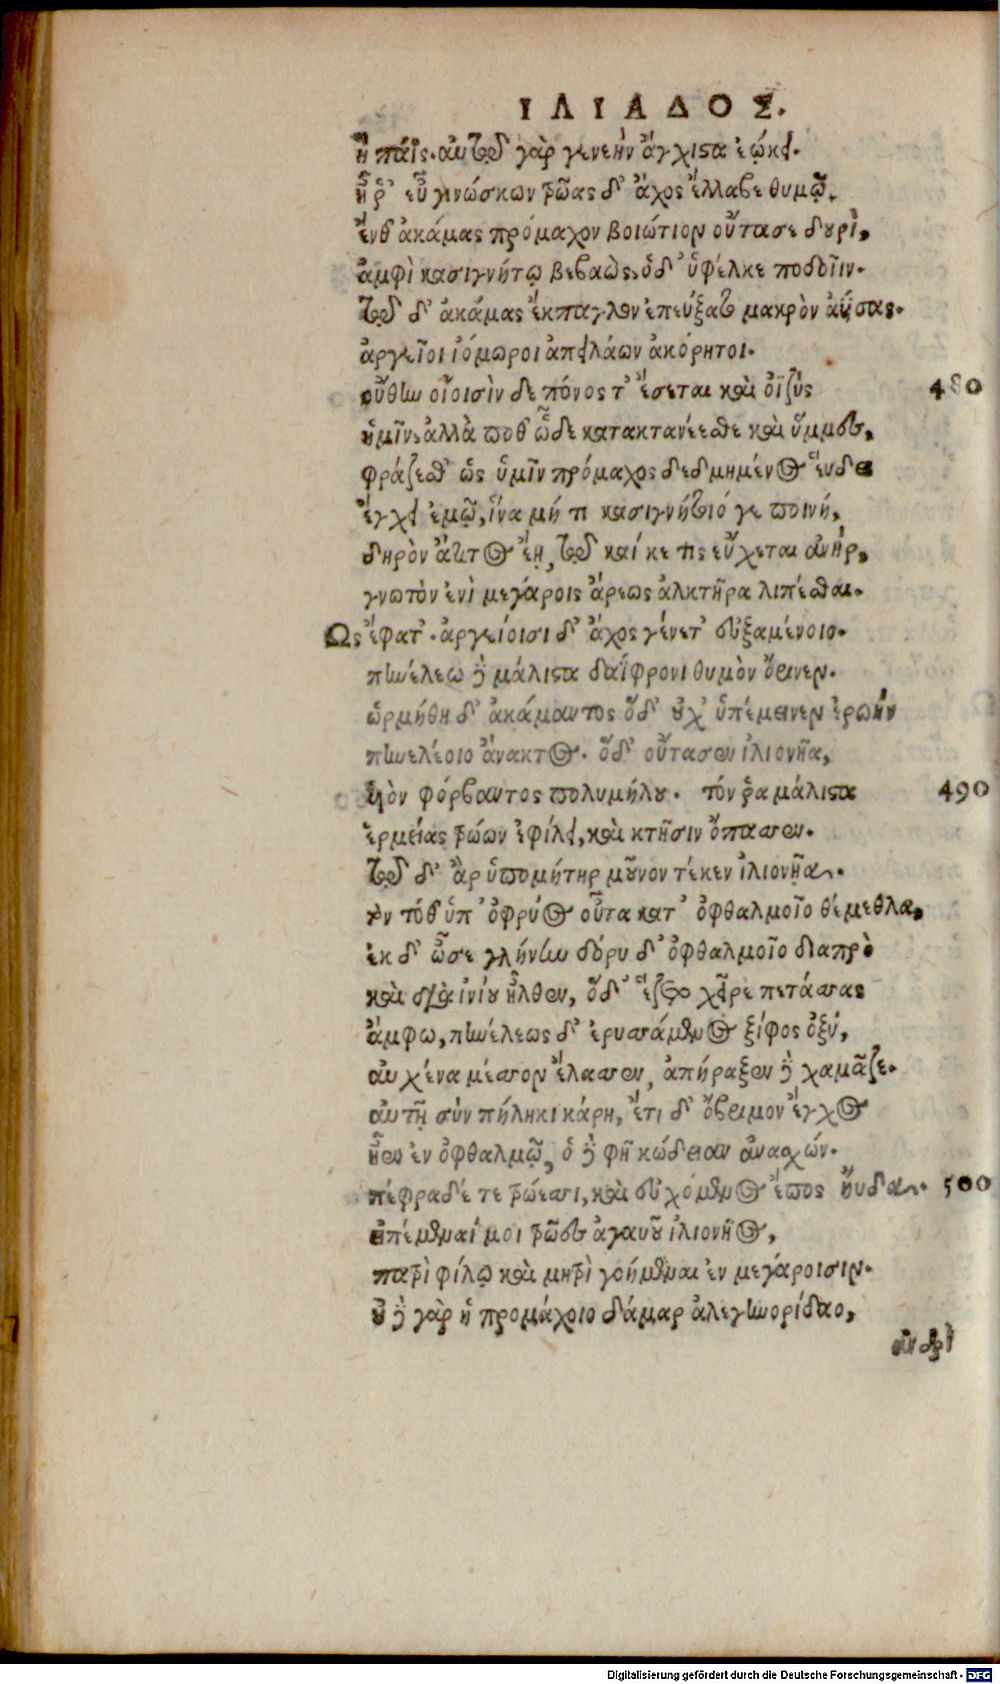 ΙΛΙΑΔΟΣ.
ἢ πάϊς. αὐτῷ γὰρ γενεὴν ἄγχιστα ἐῴκει.
ἦ ῥ' εὖ γινώσκων τρῶας δ' ἄχος ἔλλαβε θυμῷ.
ἔνθ' ἀκάμας πρόμαχον βοιώτιον οὔτασε δουρὶ,
ἀμφὶ κασιγνήτῳ βεβαὼς, ὁ δ' ὕφελκε ποδοῖιν.
τῷ δ' ἀκάμας ἔκπαγλον ἐπεύξατο μακρὸν ἀΰσας.
ἀργεῖοι ἰόμωροι ἀπειλάων ἀκόρητοι.
οὔθην οἴοισίν δε πόνος τ' ἔσεται καὶ ὀϊζὺς 480
ἡμῖν, ἀλλὰ ποθ' ὧδε κατακτανέεσθε καὶ ὔμμες,
φράζεσθ' ὡς ὑμῖν πρόμαχος δεδμημένος εὕδει
ἔγχει ἐμῷ, ἵνα μή τι κασιγνήτοιό γε ποινή,
δηρὸν ἄτιτος ἔῃ, τῷ καί κε τὶς εὔχεται ἀνήρ,
γνωτὸν ἐνὶ μεγάροις ἄρεως ἀλκτῆρα λιπέσθαι.
Ως ἔφατ'. ἀργείοισι δ' ἄχος γένετ' εὐξαμένοιο.
πηνέλεῳ δὲ μάλιστα δαΐφρονι θυμὸν ὄρινεν.
ὡρμήθη δ' ἀκάμαντος ὅδ' οὐχ' ὑπέμεινεν ἐρωὴν
πηνελέοιο ἄνακτος. ὅδ' οὔτασεν ἰλιονῆα,
υἱὸν φόρβαντος πολυμήλου. τόν ῥα μάλιστα 490
ἑρμείας τρώων ἐφίλει, καὶ κτῆσιν ὄπασσεν.
τῷ δ' ἂρ ὑπομήτηρ μοῦνον τέκεν ἰλιονῆα.
τὸν τόθ' ὑπ' ὀφρύος οὖτα κατ' ὀφθαλμοῖο θέμεθλα,
ἐκ δ' ὦσε γλήνην δόρυ δ' ὀφθαλμοῖο διαπρὸ
καὶ διὰ ἰνίου ἦλθεν, ὅδ' ἕζετο χεῖρε πετάσσας
ἄμφω, πηνέλεως δ' ἐρυσσάμενος ξίφος ὀξύ,
αὐχένα μέσσον ἔλασσεν, ἀπήραξεν δὲ χαμᾶζε.
αὐτῇ σὺν πήληκι κάρη, ἔτι δ' ὄβριμον ἔγχος
ἦεν ἐν ὀφθαλμῷ, ὁ δὲ φῆ κώδειαν ἀνασχών.
πέφραδέ τε τρώεσσι, καὶ εὐχόμενος ἔπος ηὔδα. 500
εἰπέμεναί μοι τρῶες ἀγαυοῦ ἰλιονῆος,
πατρὶ φίλῳ καὶ μητρὶ γοήμεναι ἐν μεγάροισιν.
οὐ δὲ γὰρ ἡ προμάχοιο δάμαρ ἀλεγηνορίδαο,
ἀνδρὶ
Digitalisierung gefördert durch die Deutsche Forschungsgemeinschaft - DFG